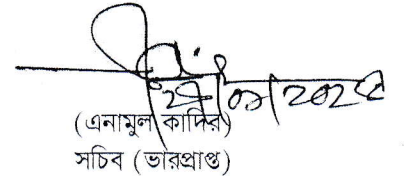 (এনামুল কাদির)
সচিব (ভারপ্রাপ্ত)